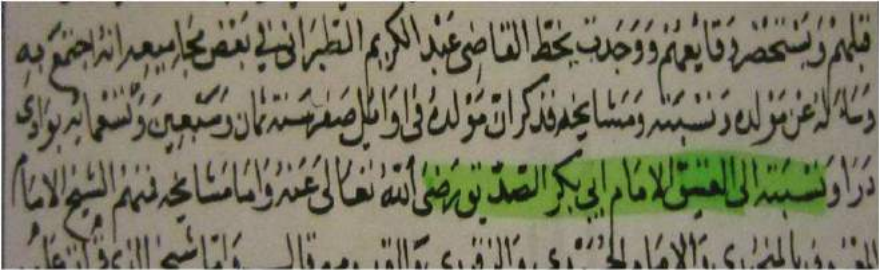 قبلهم ويستحضر وقايعهم ووجدت بخط القاضى عبد الكريم الطبرانى فى بعض مجاميعه انه اجتمع به
وساله عن مولده ونسبته ومشايخه فذكر ان مولده فى اوايل صفر سنة ثمان وسبعين وتسعمايه بوادى
درا ونسبته الى العتيق الامام ابي بكر الصديق رضى الله تعالى عنه واما مشايخه فمنهم الشيخ الامام